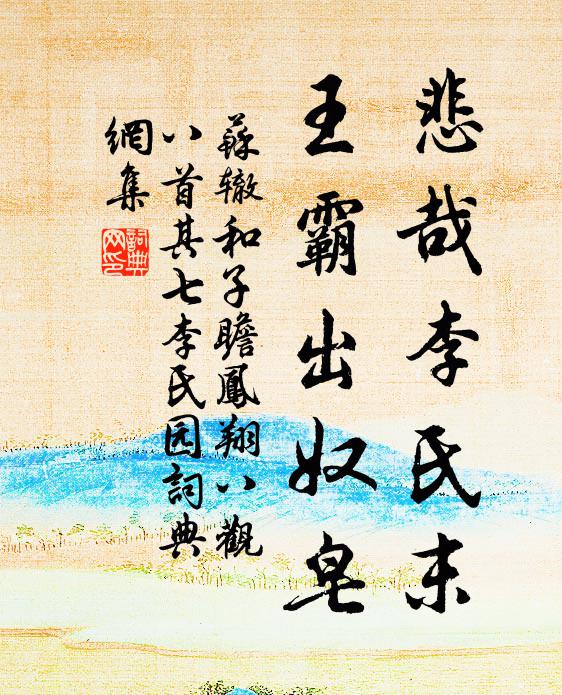 悲哉李氏末
王霸出奴皂
蘇辙和子瞻鳳翔八觀
八首其七李氏园詞典
網集
詞典
网印